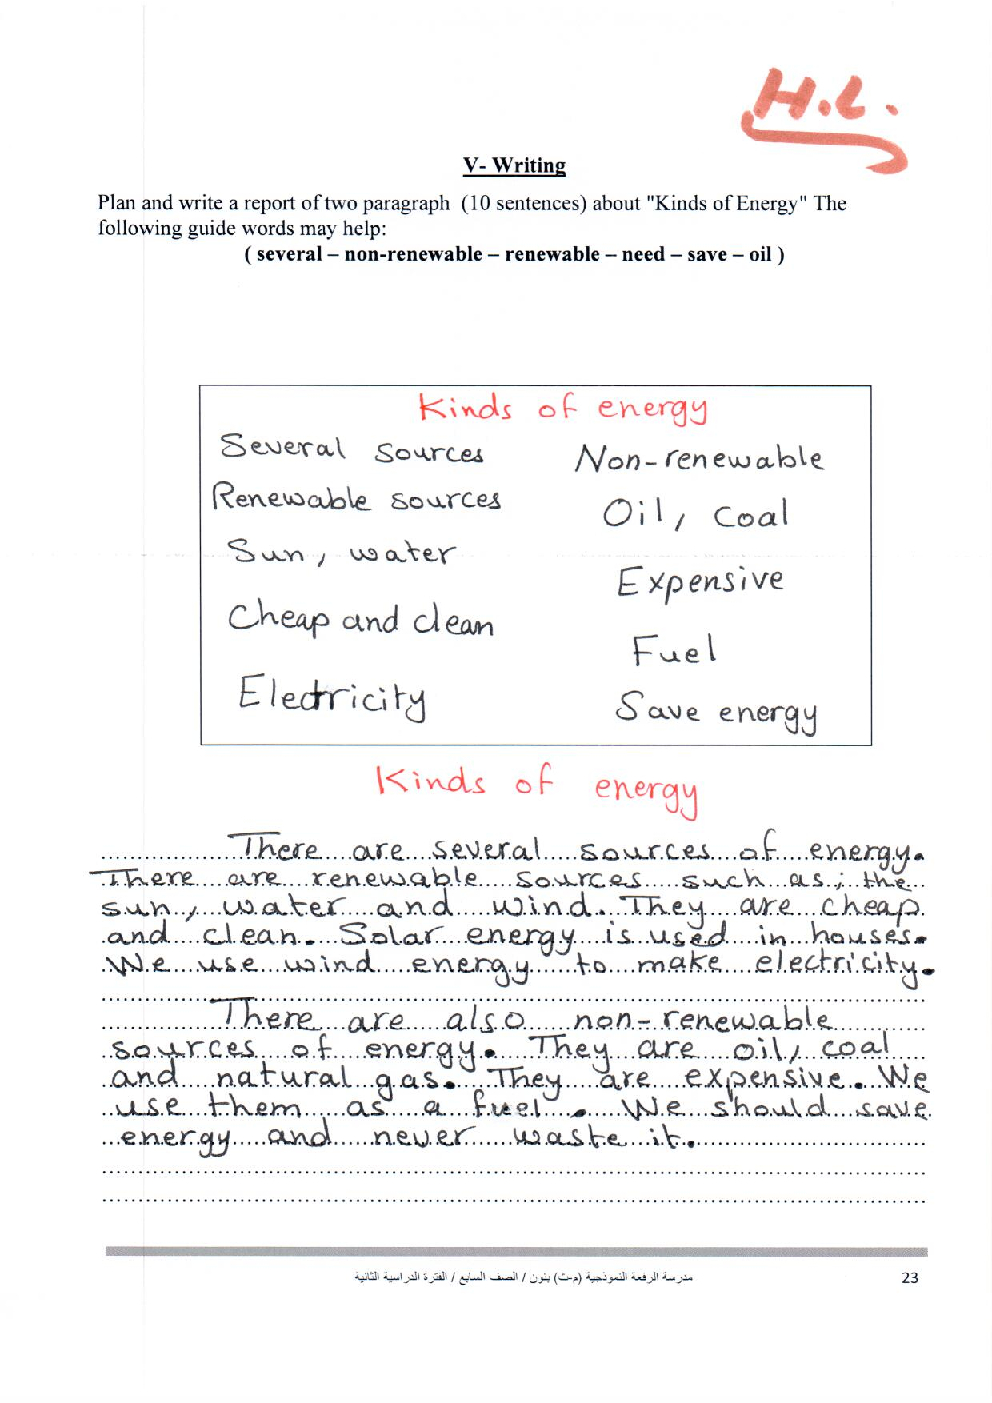 H.L.
V- Writing
Plan and write a report of two paragraph (10 sentences) about "Kinds of Energy" The
following guide words may help:
( several – non-renewable – renewable – need – save – oil )
Kinds of energy
Several sources
Renewable sources
Sun, water
Cheap and clean
Electricity
Non-renewable
Oil, coal
Expensive
Fuel
Save energy
Kinds of energy
There are several sources of energy.
There are renewable sources such as; the
sun, water and wind. They are cheap
and clean. Solar energy is used in houses.
We use wind energy to make electricity.
There are also non-renewable
sources of energy. They are oil, coal
and natural gas. They are expensive. We
use them as a fuel. We should save
energy and never waste it.
مدرسة الرفعة النموذجية (م-ث) بنون / الصف السابع / الفترة الدراسية الثانية
23